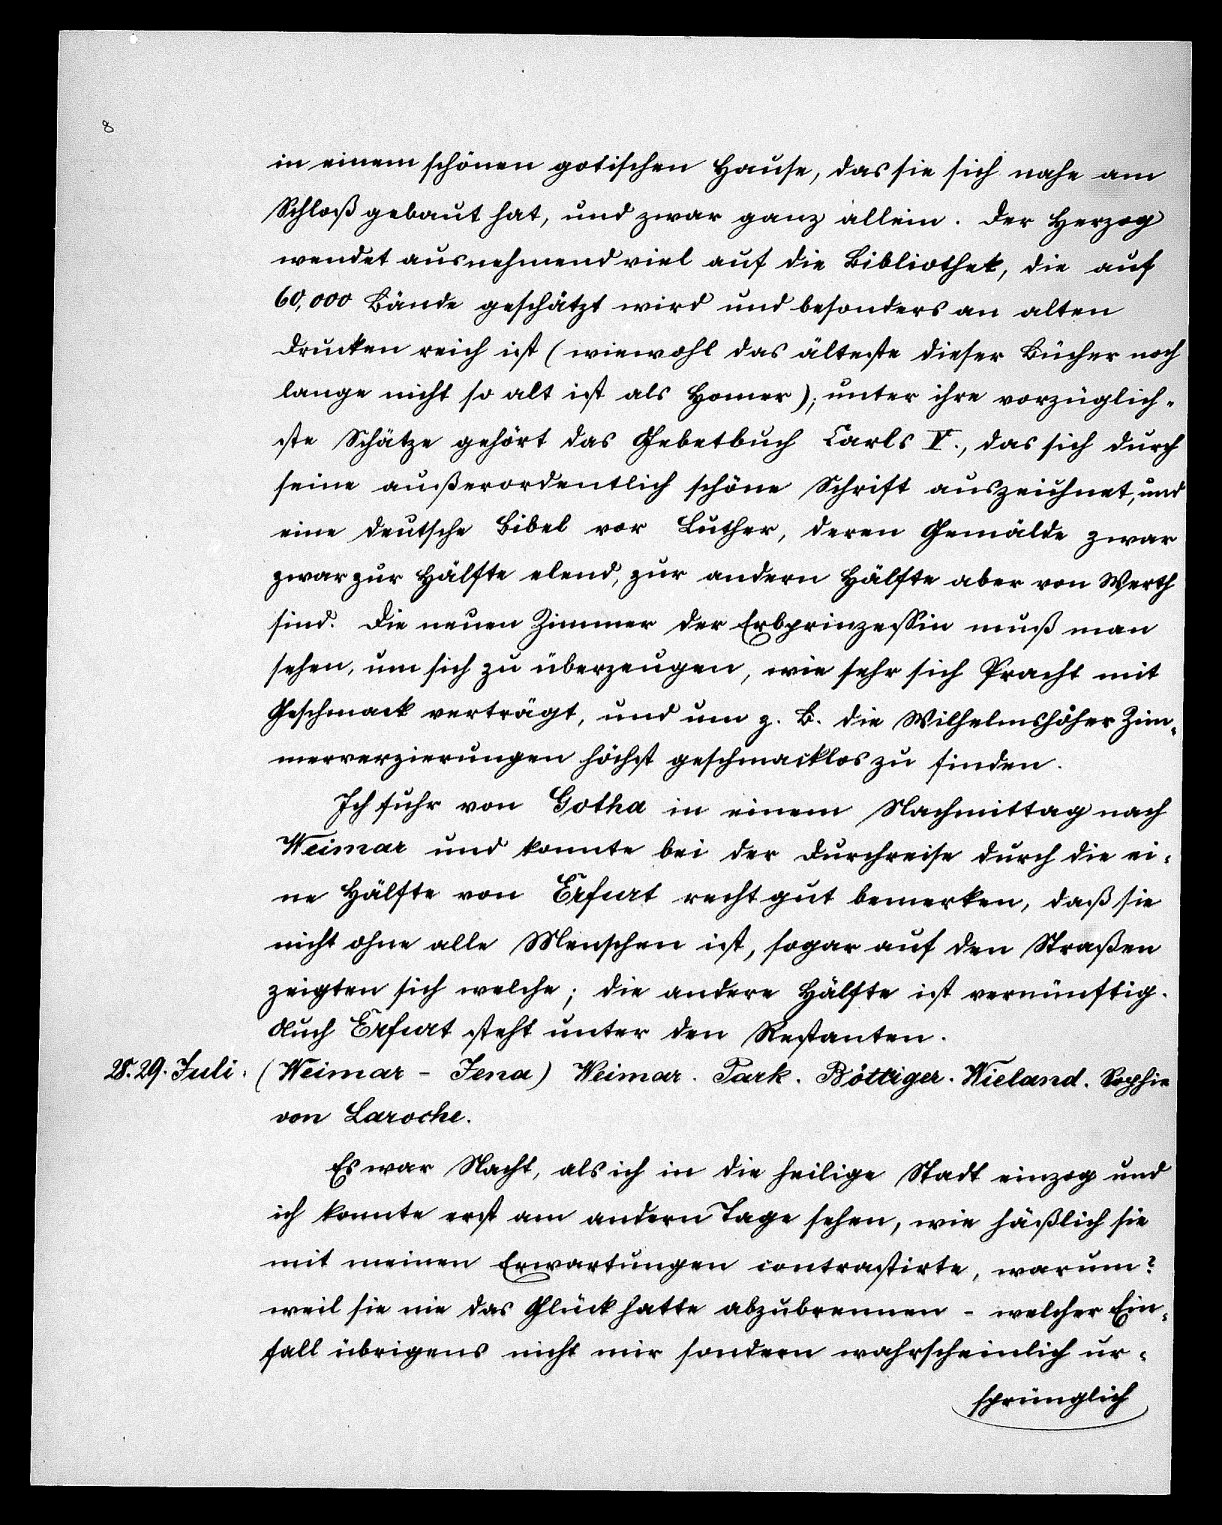 8
in einem schönen gotischen Hause, das sie sich nahe am
Schloß gebaut hat, und zwar ganz allein. Der Herzog
wendet ausnehmend viel auf die Bibliothek, die auf
60,000 Bände geschätzt wird und besonders an alten
Drucken reich ist (wiewohl das älteste dieser Bücher noch
lange nicht so alt ist als Homer); unter ihre vorzüglich-
ste Schätze gehört das Gebetbuch Carls V., das sich durch
seine außerordentlich schöne Schrift auszeichnet, und
eine deutsche Bibel vor Luther, deren Gemälde zwar
zwar zur Hälfte elend, zur andern Hälfte aber von Werth
sind. Die neuen Zimmer der Erbprinzessin muß man
sehen, um sich zu überzeugen, wie sehr sich Pracht mit
Geschmack verträgt, und um z. B. die Wilhelmshöher Zim-
merverzierungen höchst geschmacklos zu finden.
Ich fuhr von Gotha in einem Nachmittag nach
Weimar und konnte bei der Durchreise durch die ei-
ne Hälfte von Erfurt recht gut bemerken, daß sie
nicht ohne alle Menschen ist, sogar auf den Straßen
zeigten sich welche; die andere Hälfte ist vernünftig.
Auch Erfurt steht unter den Restanten.
28. 29. Juli. (Weimar - Jena) Weimar. Park. Böttiger. Wieland. Sophie
von Laroche.
Es war Nacht, als ich in die heilige Stadt einzog und
ich konnte erst am andern Tage sehen, wie häßlich sie
mit meinen Erwartungen contrastirte, warum?
weil sie nie das Glück hatte abzubrennen - welcher Ein-
fall übrigens nicht mir sondern wahrscheinlich ur-
sprünglich